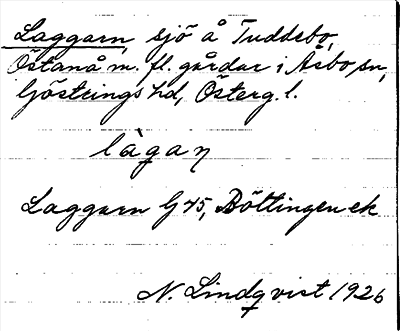 Laggarn, sjö å Tuddebo,
Östanå m. fl. gårdar i Åsbo sn,
Göstrings hd, Österg. l.
làgaŋ
Laggarn G 45, Böttingen ek
N. Lindqvist 1926